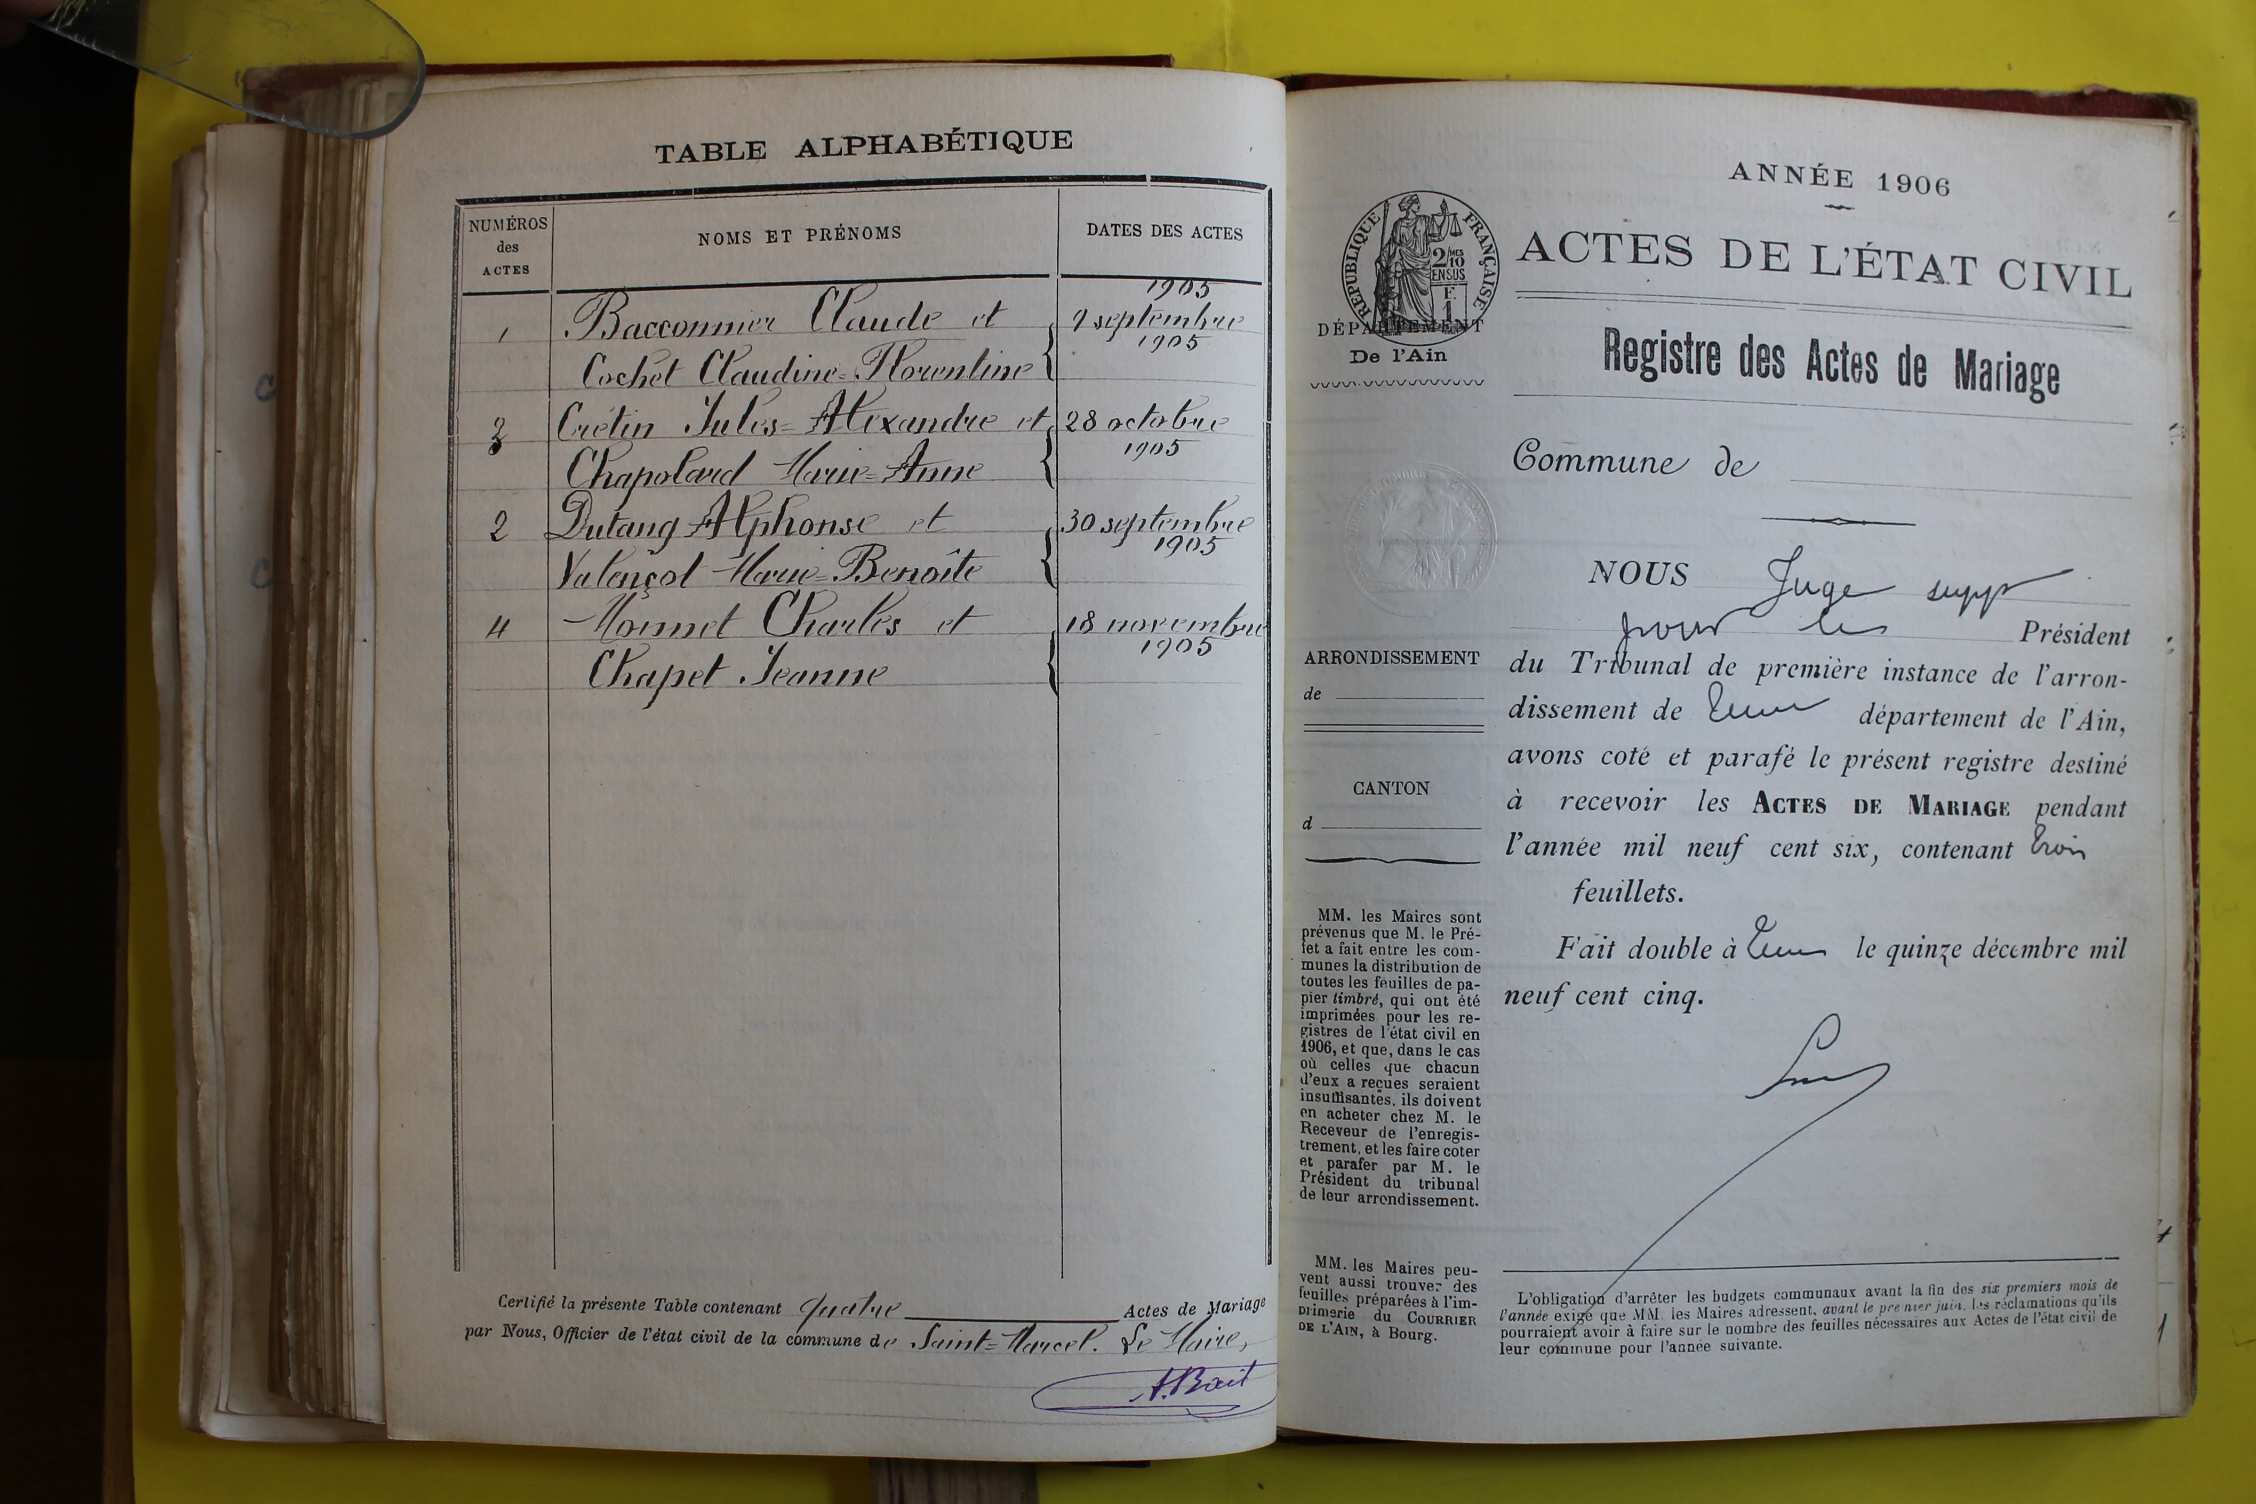 TABLE ALPHABÉTIQUE
NUMÉROS des ACTES
NOMS ET PRÉNOMS
DATES DES ACTES
1905
1 Bacconnier Claude et 9 septembre
1905
Cochet Claudine=Florentine
3 Crétin Jules=Alexandre et 28 octobre
1905
Chapolard Marie=Anne
2 Dutang Alphonse et 30 septembre
1905
Valençot Marie=Benoîte
4 Monnet Charles et 18 novembre
1905
Chapet Jeanne
Certifié la présente Table contenant quatre Actes de Mariage
par Nous, Officier de l'état civil de la commune de Saint=Marcel. Le Maire,
ANNÉE 1906
RÉPUBLIQUE FRANÇAISE
2/MES 10
EN SUS
F.
1
ACTES DE L'ÉTAT CIVIL
DÉPARTEMENT
De l'Ain
Registre des Actes de Mariage
Commune de
NOUS Juge supp
pour le Président
ARRONDISSEMENT
de
CANTON
d
du Tribunal de première instance de l'arron-
dissement de département de l'Ain,
avons coté et parafé le présent registre destiné
à recevoir les ACTES DE MARIAGE pendant
l'année mil neuf cent six, contenant trois
feuillets.
Fait double à le quinze décembre mil
neuf cent cinq.
MM. les Maires sont
prévenus que M. le Pré-
fet a fait entre les com-
munes la distribution de
toutes les feuilles de pa-
pier timbré, qui ont été
imprimées pour les re-
gistres de l'état civil en
1906, et que, dans le cas
où celles que chacun
d'eux a reçues seraient
insuffisantes, ils doivent
en acheter chez M. le
Receveur de l'enregis-
trement, et les faire coter
et parafer par M. le
Président du tribunal
de leur arrondissement.
MM. les Maires peu-
vent aussi trouver des
feuilles préparées à l'im-
primerie du COURRIER
DE L'AIN, à Bourg.
L'obligation d'arrêter les budgets communaux avant la fin des six premiers mois de
l'année exige que MM. les Maires adressent, avant le premier juin, les réclamations qu'ils
pourraient avoir à faire sur le nombre des feuilles nécessaires aux Actes de l'état civil de
leur commune pour l'année suivante.